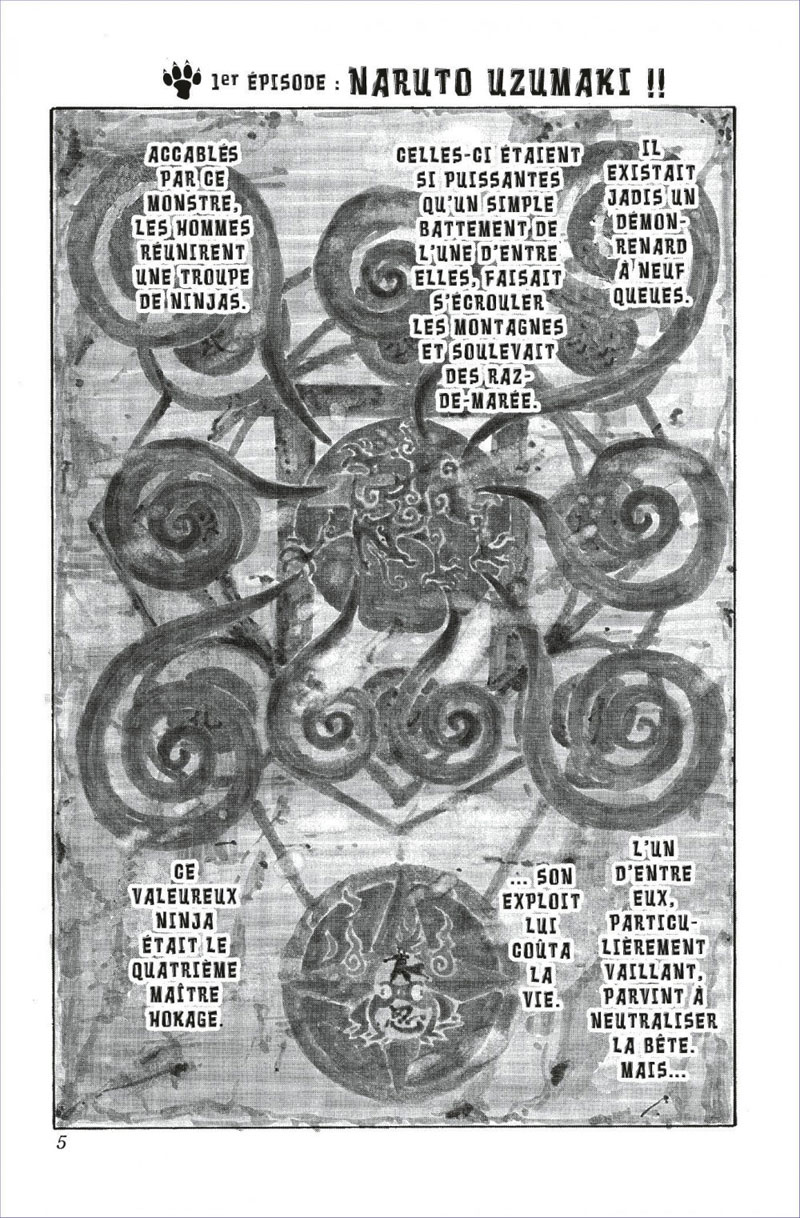 1er ÉPISODE : NARUTO UZUMAKI !!
IL
EXISTAIT
JADIS UN
DÉMON-
RENARD
À NEUF
QUEUES.
CELLES-CI ÉTAIENT
SI PUISSANTES
QU'UN SIMPLE
BATTEMENT DE
L'UNE D'ENTRE
ELLES, FAISAIT
S'ÉCROULER
LES MONTAGNES
ET SOULEVAIT
DES RAZ-
DE-MARÉE.
ACCABLÉS
PAR CE
MONSTRE,
LES HOMMES
RÉUNIRENT
UNE TROUPE
DE NINJAS.
L'UN
D'ENTRE
EUX,
PARTICU-
LIÈREMENT
VAILLANT,
PARVINT À
NEUTRALISER
LA BÊTE.
MAIS...
... SON
EXPLOIT
LUI
COÛTA
LA
VIE.
CE
VALEUREUX
NINJA
ÉTAIT LE
QUATRIÈME
MAÎTRE
HOKAGE.
5